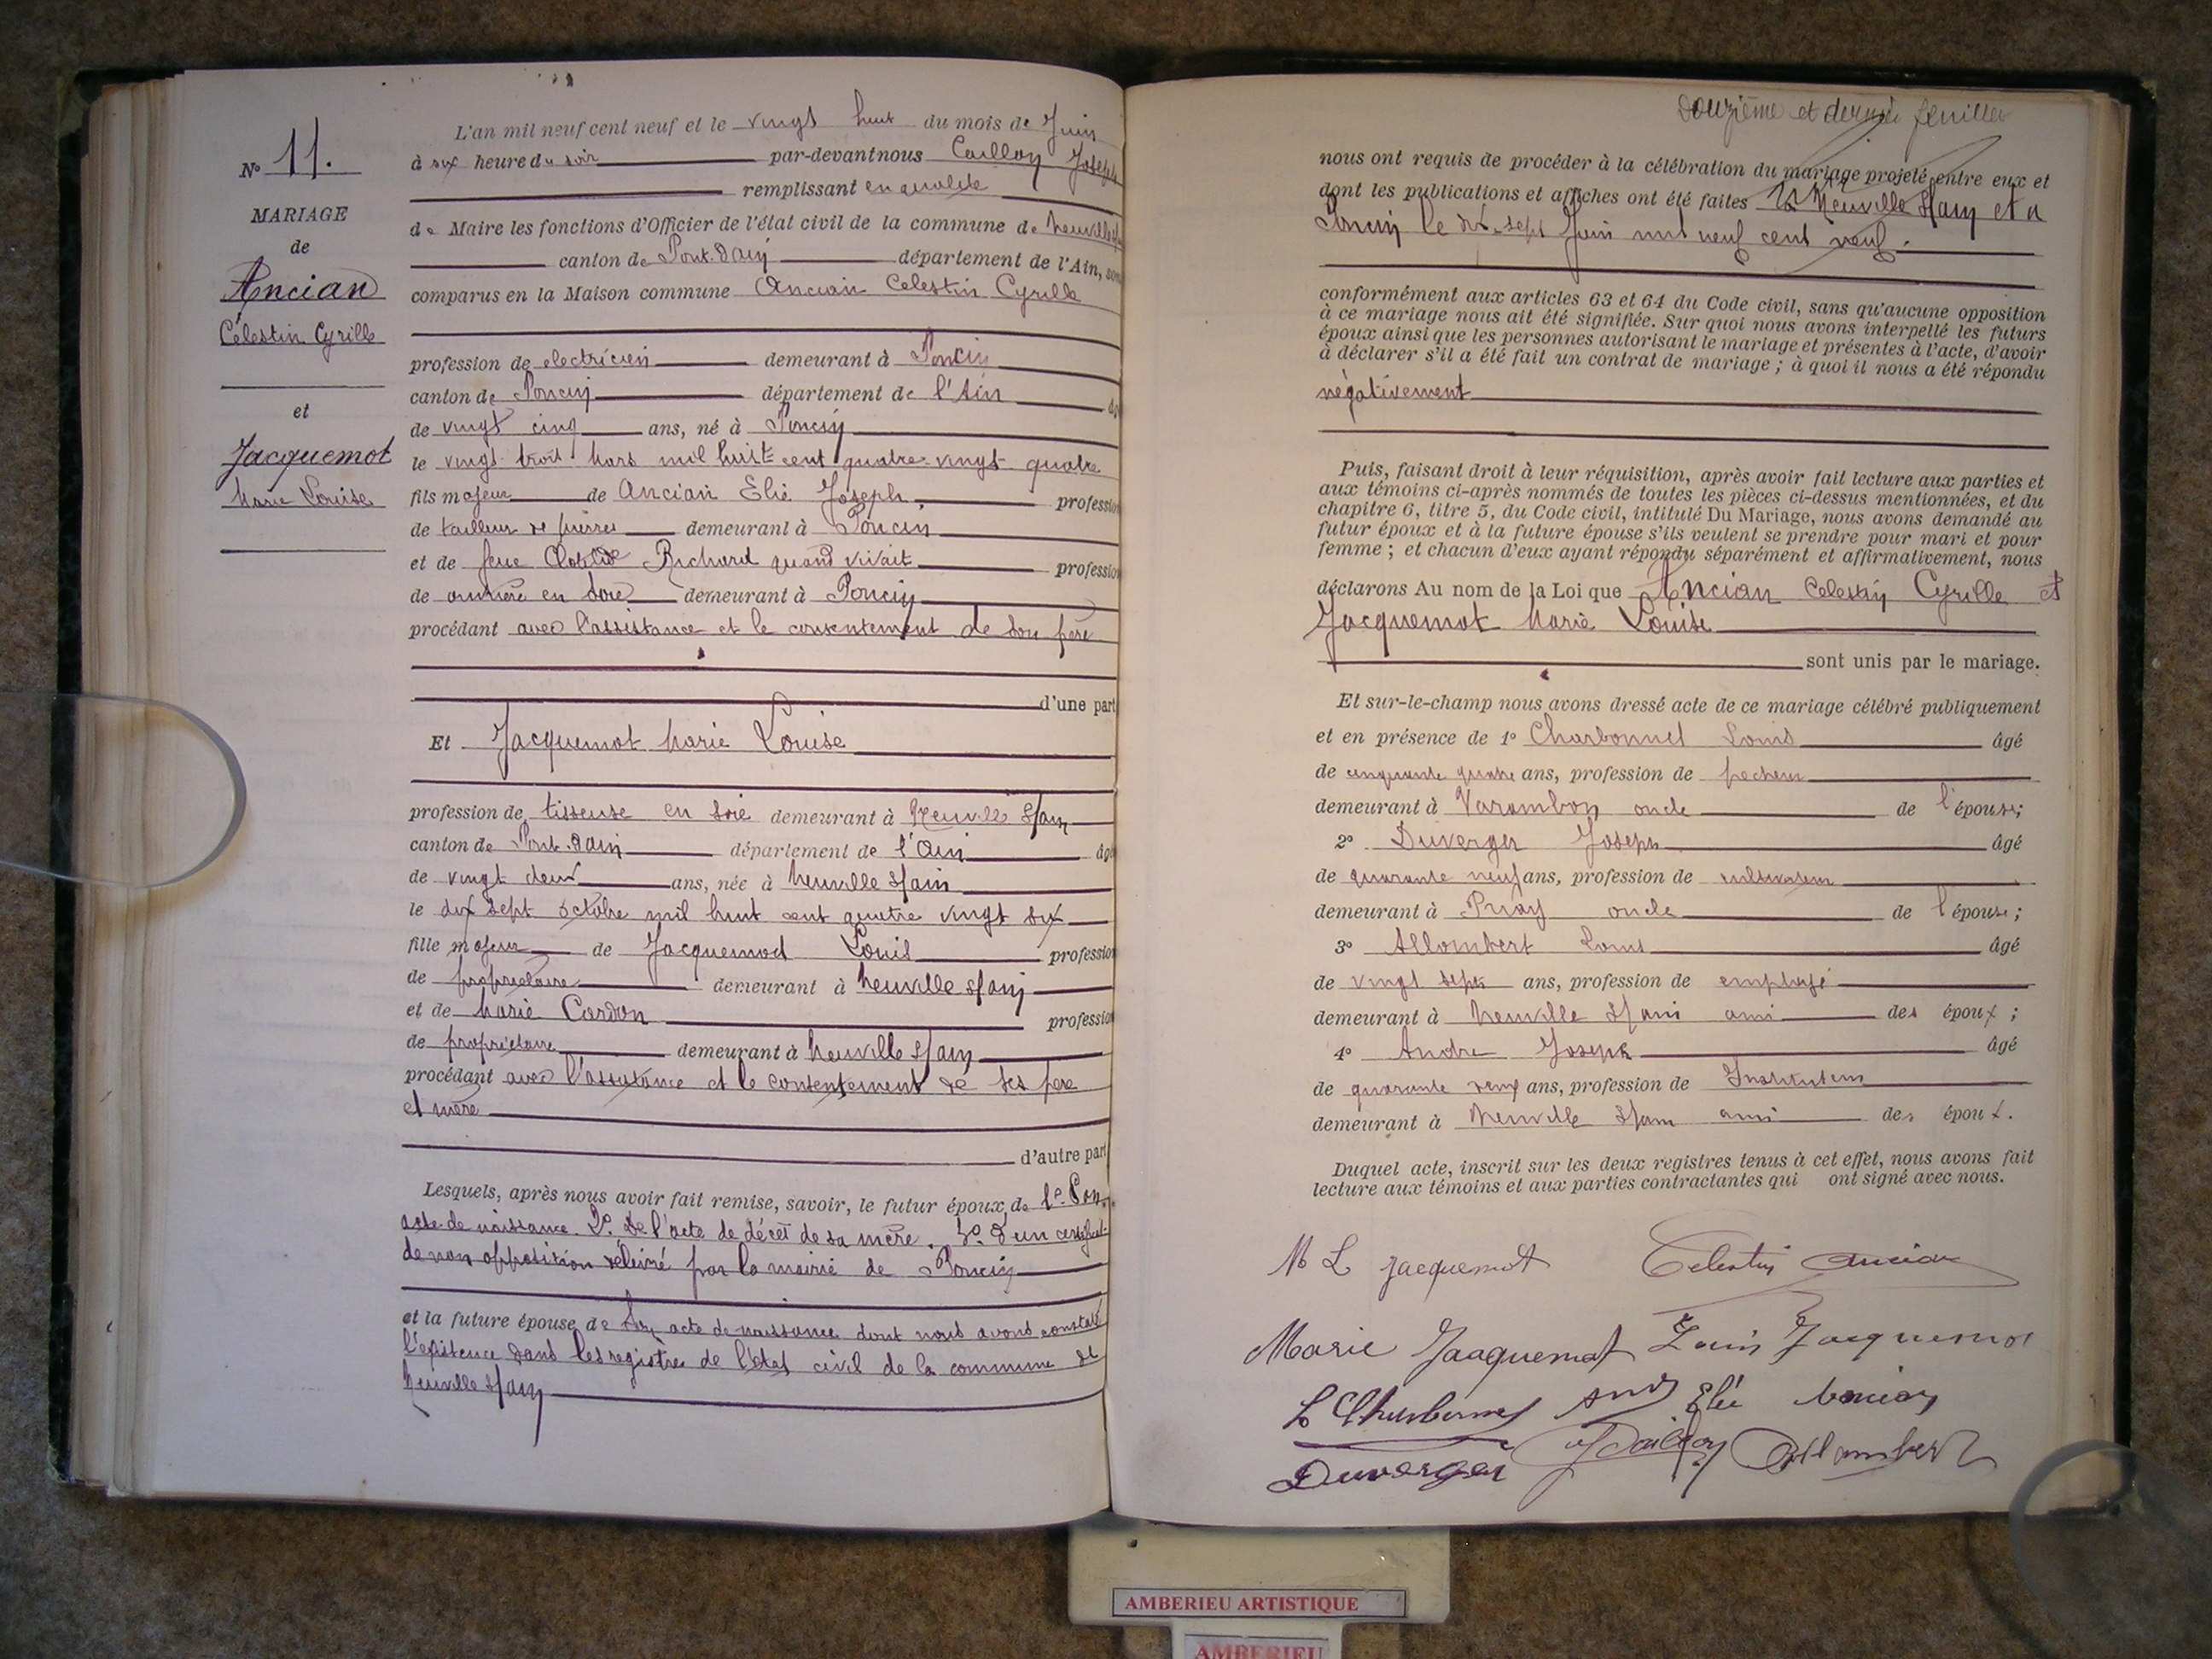 L'an mil neuf cent neuf et le vingt huit du mois de Juin
à six heure du soir par-devant nous Caillon Joseph
remplissant en qualité
de Maire les fonctions d'Officier de l'état civil de la commune de Neuville s/ain
canton de Pont-d'ain département de l'Ain, sont
comparus en la Maison commune Ancian Celestin Cyrille
profession de electricien demeurant à Poncin
canton de Poncin département de l'Ain âgé
de vingt cinq ans, né à Poncin
le vingt trois Mars mil huit cent quatre vingt quatre
fils majeur de Ancian Elie Joseph profession
de tailleur de pierres demeurant à Poncin
et de feue Clotilde Richard quand vivait profession
de ouvrière en soie demeurant à Poncin
procédant avec l'assistance et le consentement de son père
d'une part
Et Jacquemot Marie Louise
profession de tisseuse en soie demeurant à Neuville s/ain
canton de Pont-d'ain département de l'Ain âgé
de vingt deux ans, née à Neuville s/ain
le dix sept octobre mil huit cent quatre vingt six
fille majeur de Jacquemod Louis profession
de propriétaire demeurant à Neuville s/ain
et de Marie Cardon profession
de propriétaire demeurant à Neuville s/ain
procédant avec l'assistance et le consentement de ses père
et mère
d'autre part
Lesquels, après nous avoir fait remise, savoir, le futur époux de 1º Son
acte de naissance. 2º De l'acte de décès de sa mère. 3º D'un certificat
de non opposition délivré par la mairie de Poncin
et la future épouse de Son acte de naissance dont nous avons constaté
l'existence dans les registres de l'état civil de la commune de
Neuville s/ain
Nº 11.
MARIAGE
de
Ancian
Célestin Cyrille
et
Jacquemot
Marie Louise
Douzième et dernier feuillet
nous ont requis de procéder à la célébration du mariage projeté entre eux et
dont les publications et affiches ont été faites à Neuville s/ain et à
Poncin le dix-sept Juin mil neuf cent neuf.
conformément aux articles 63 et 64 du Code civil, sans qu'aucune opposition
à ce mariage nous ait été signifiée. Sur quoi nous avons interpellé les futurs
époux ainsi que les personnes autorisant le mariage et présentes à l'acte, d'avoir
à déclarer s'il a été fait un contrat de mariage ; à quoi il nous a été répondu
négativement
Puis, faisant droit à leur réquisition, après avoir fait lecture aux parties et
aux témoins ci-après nommés de toutes les pièces ci-dessus mentionnées, et du
chapitre 6, titre 5, du Code civil, intitulé Du Mariage, nous avons demandé au
futur époux et à la future épouse s'ils veulent se prendre pour mari et pour
femme ; et chacun d'eux ayant répondu séparément et affirmativement, nous
déclarons Au nom de la Loi que Ancian Celestin Cyrille et
Jacquemot Marie Louise
sont unis par le mariage.
Et sur-le-champ nous avons dressé acte de ce mariage célébré publiquement
et en présence de 1º Charbonnel Louis âgé
de cinquante quatre ans, profession de pecheur
demeurant à Varambon oncle de l'épouse;
2º Duverger Joseph âgé
de quarante neuf ans, profession de cultivateur
demeurant à oncle de l'épouse ;
3º Allombert Louis âgé
de vingt sept ans, profession de employé
demeurant à Neuville s/ain ami des époux ;
4º André Joseph âgé
de quarante ans, profession de Instituteur
demeurant à Neuville s/ain ami des époux.
Duquel acte, inscrit sur les deux registres tenus à cet effet, nous avons fait
lecture aux témoins et aux parties contractantes qui ont signé avec nous.
M L Jacquemot Celestin Ancian
Marie Jacquemot Louis Jacquemot
L Charbonnel André Elie Ancian
Duverger J Caillon Allombert
AMBERIEU ARTISTIQUE
AMBERIEU